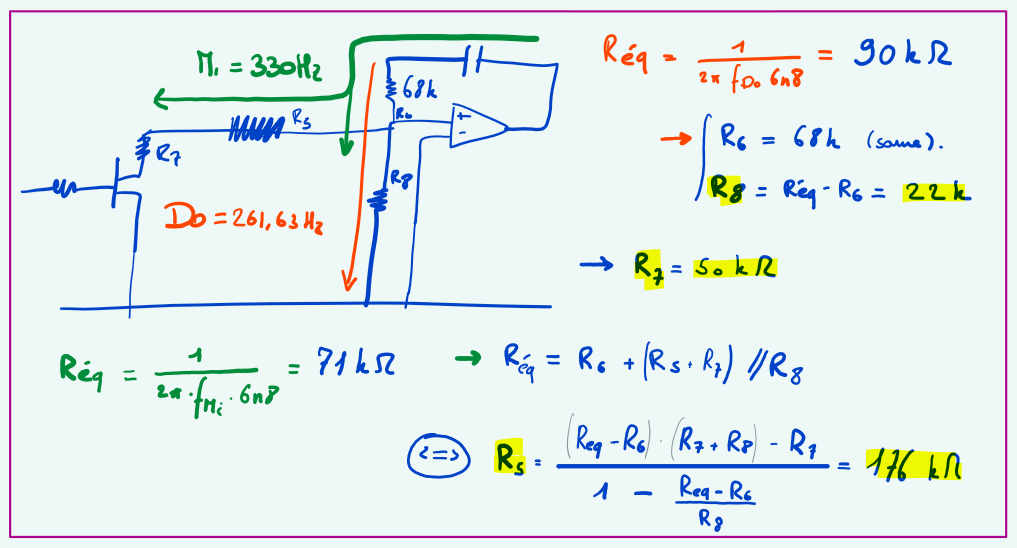 Mi = 330Hz
68k
R6
R5
R7
R8
+
-
Do = 261,63 Hz
Réq = 1 / 2π fDo 6n8 = 90 kΩ
→ R6 = 68k (same).
R8 = Réq - R6 = 22k
→ R7 = 50 kΩ
Réq = 1 / 2π · fMi · 6n8 = 71 kΩ → Réq = R6 + (R5 + R7) // R8
<=> R5 = (Req - R6) · (R7 + R8) - R7 / 1 - Req - R6 / R8 = 176 kΩ